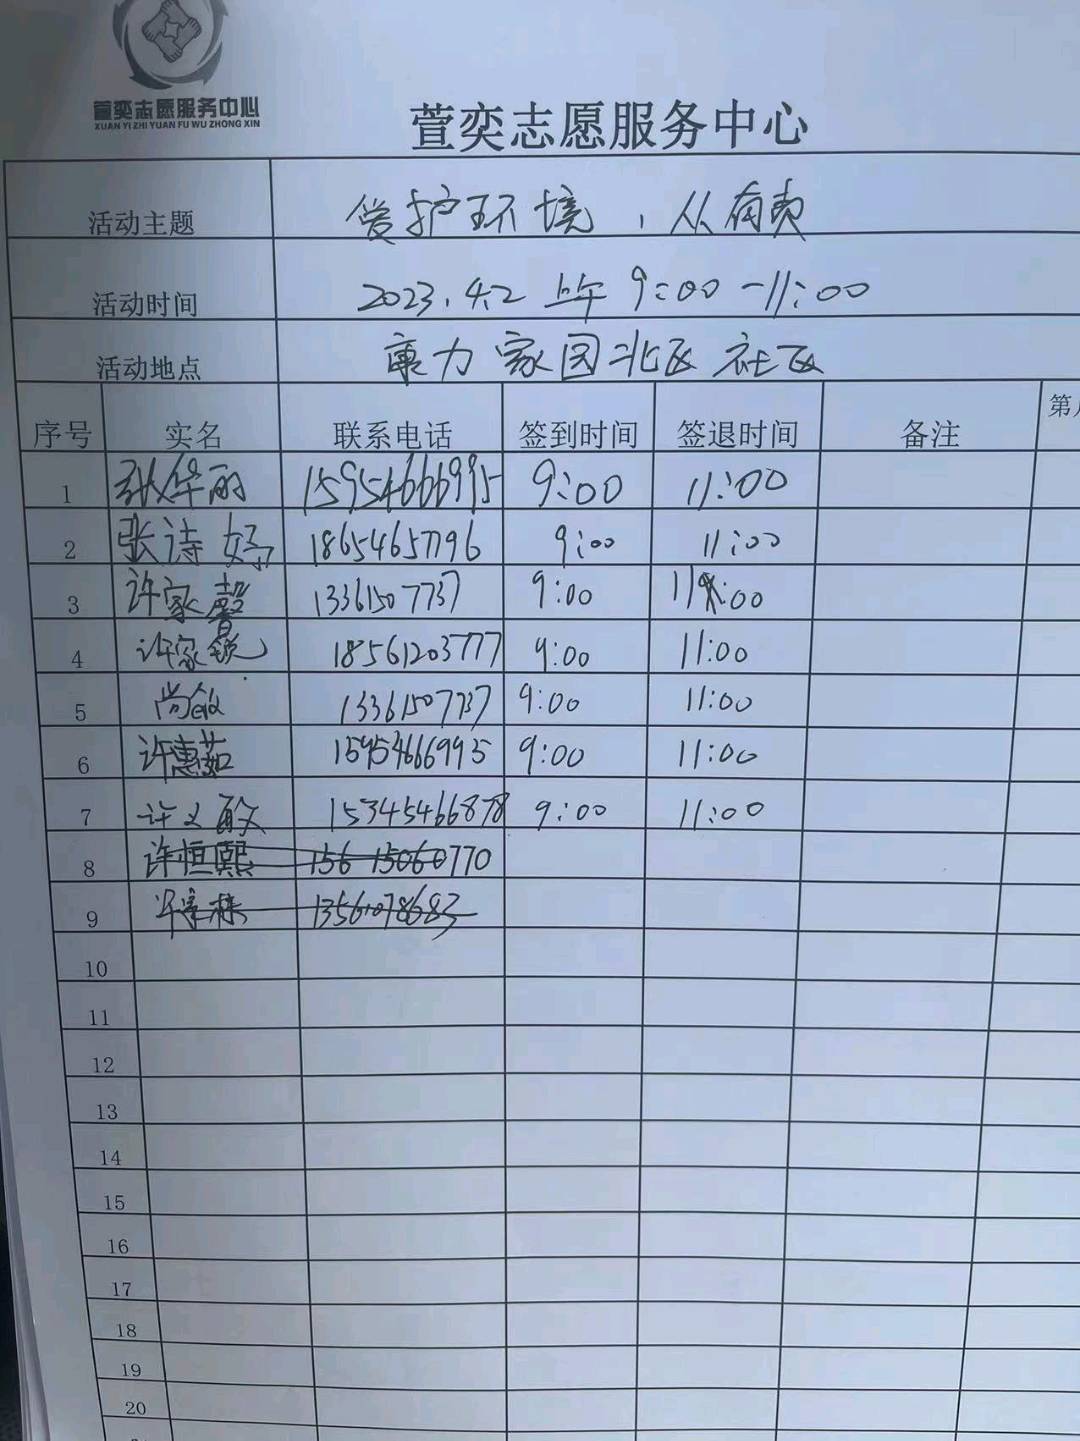 萱奕志愿服务中心
XUAN YI ZHI YUAN FU WU ZHONG XIN
萱奕志愿服务中心
活动主题 爱护环境，从有责
活动时间 2023.4.2 上午 9:00-11:00
活动地点 康力家园北区社区
序号 实名 联系电话 签到时间 签退时间 备注 第
1 张华丽 15954666995 9:00 11:00
2 张诗婷 18654657796 9:00 11:00
3 许家馨 13361507737 9:00 11:00
4 许家锐 18561203777 9:00 11:00
5 尚敏 13361507737 9:00 11:00
6 许惠茹 15954666995 9:00 11:00
7 许文敏 15345466878 9:00 11:00
8 许恒熙 15615060770
9 许家栋 13561078683
10
11
12
13
14
15
16
17
18
19
20